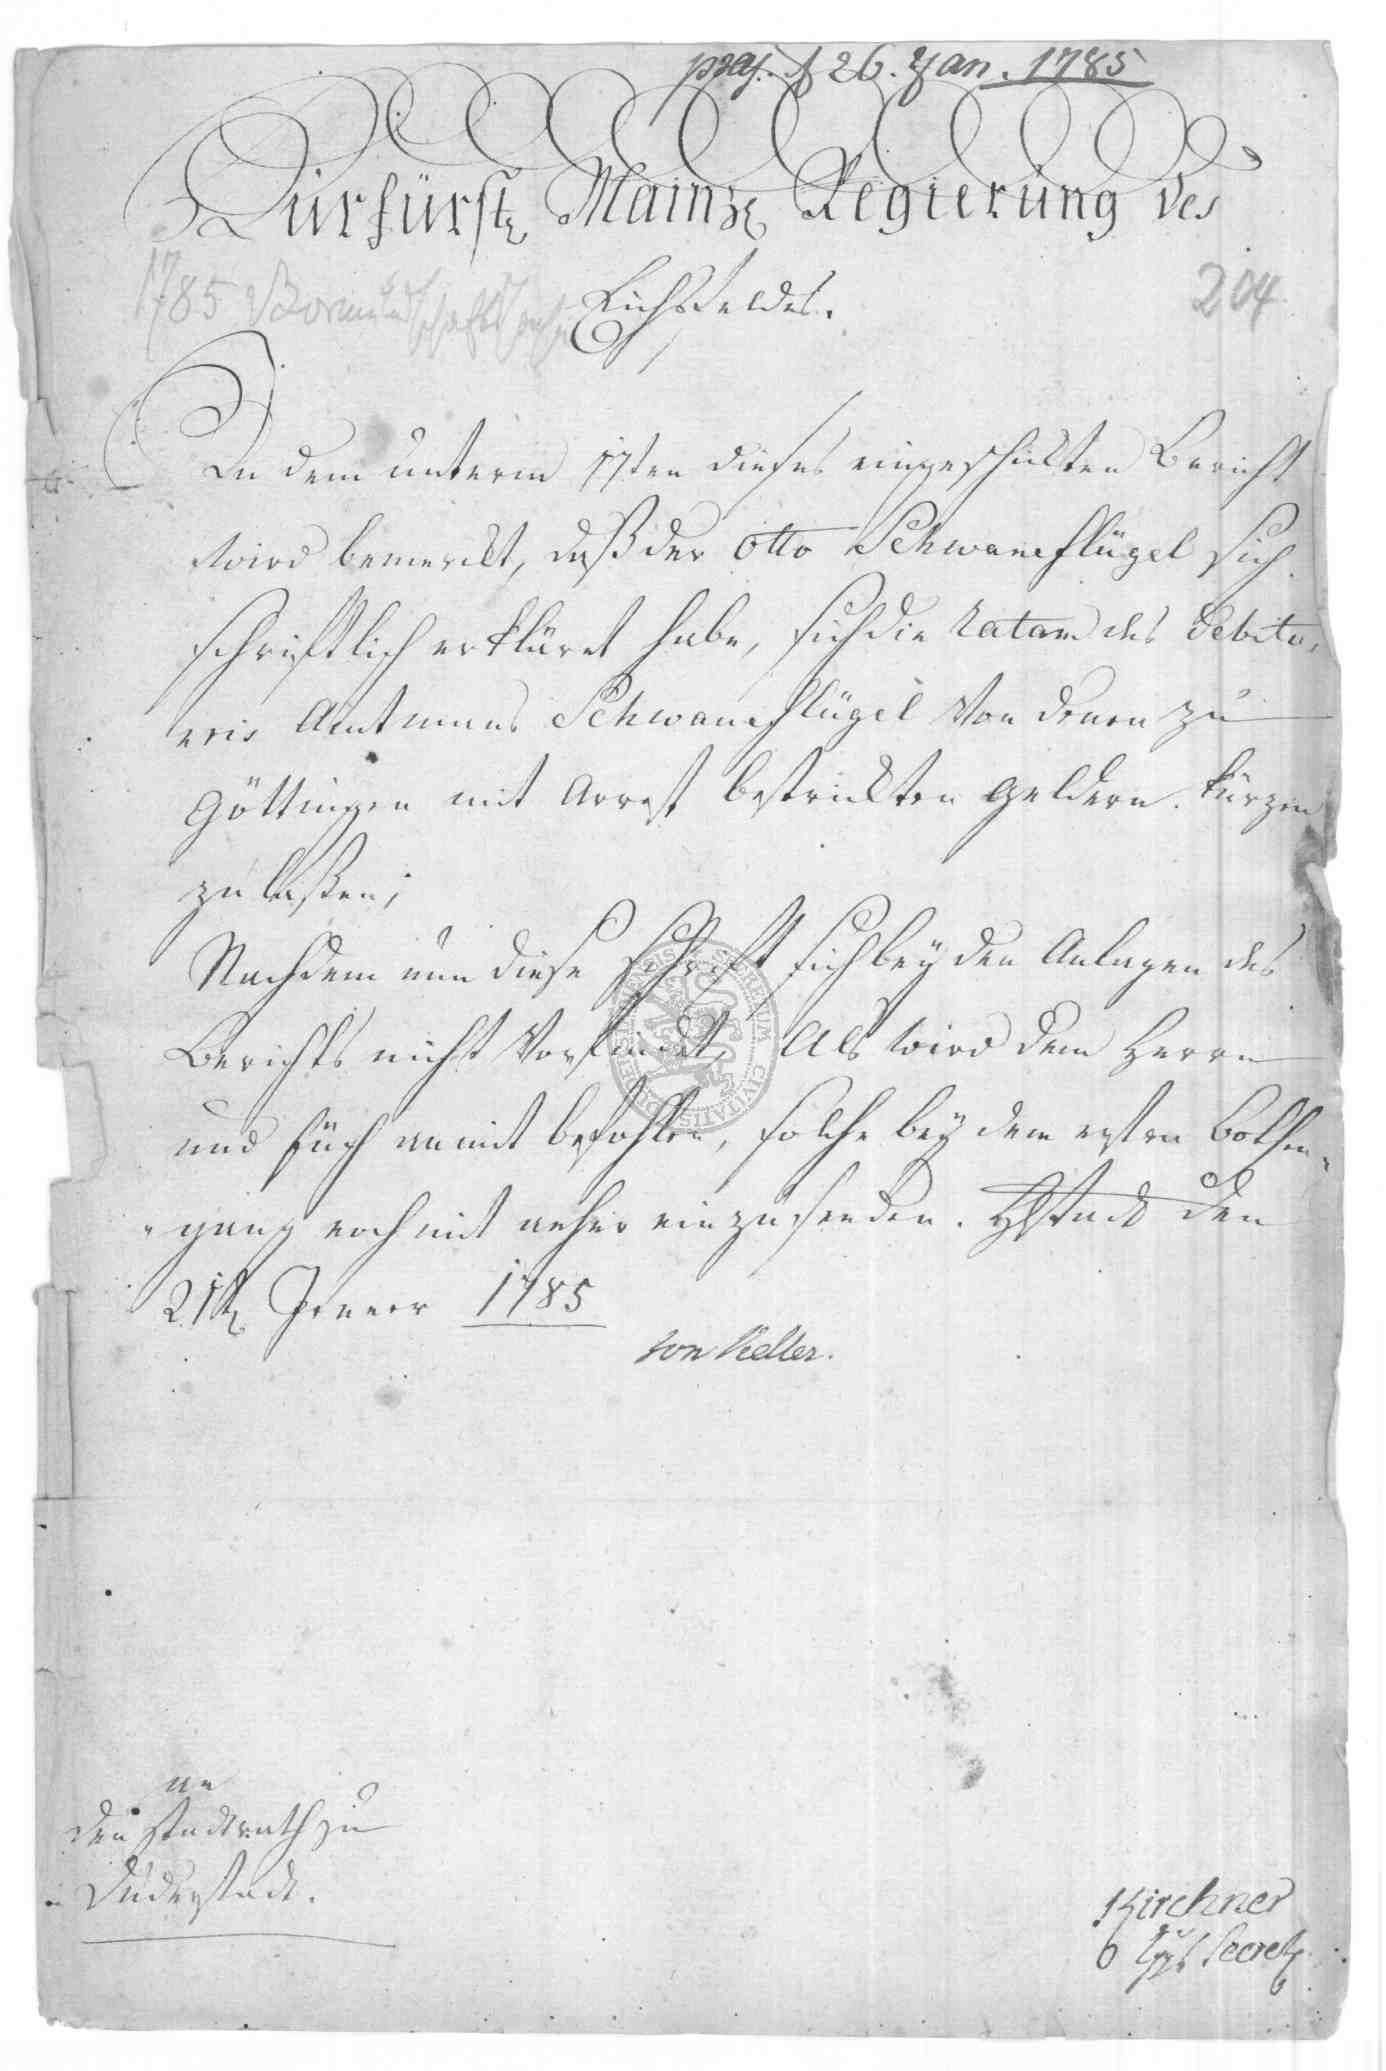 praes. d 26. Jan. 1785
Kürfürstl Mainzl Regierung des
1785 Vormundschafts
Eichsfeldes.
204
In dem unterm 17ten dieses eingeschickten Bericht
wird bemerckt, daß der Otto Schwaneflügel sich
schriftlich erkläret habe, sich die Ratam des Debito,
ris Amtmans Schwaneflügel von denen zu
Göttingen mit Arrest bestrickten Geldern kürzen
zu laßen;
Nachdem nun diese Schrift sich bey den Anlagen des
Berichts nicht vorfindet, Als wird dem Herrn
und Euch anmit befohlen, solche bey dem ersten Bothen-
-gang noch mit anher einzusenden. Hstadt den
21t Jenner 1785
von Keller.
an
den Stadtrath zu
Duderstadt.
Kirchner
Secret
SECRETUM CIVITATIS